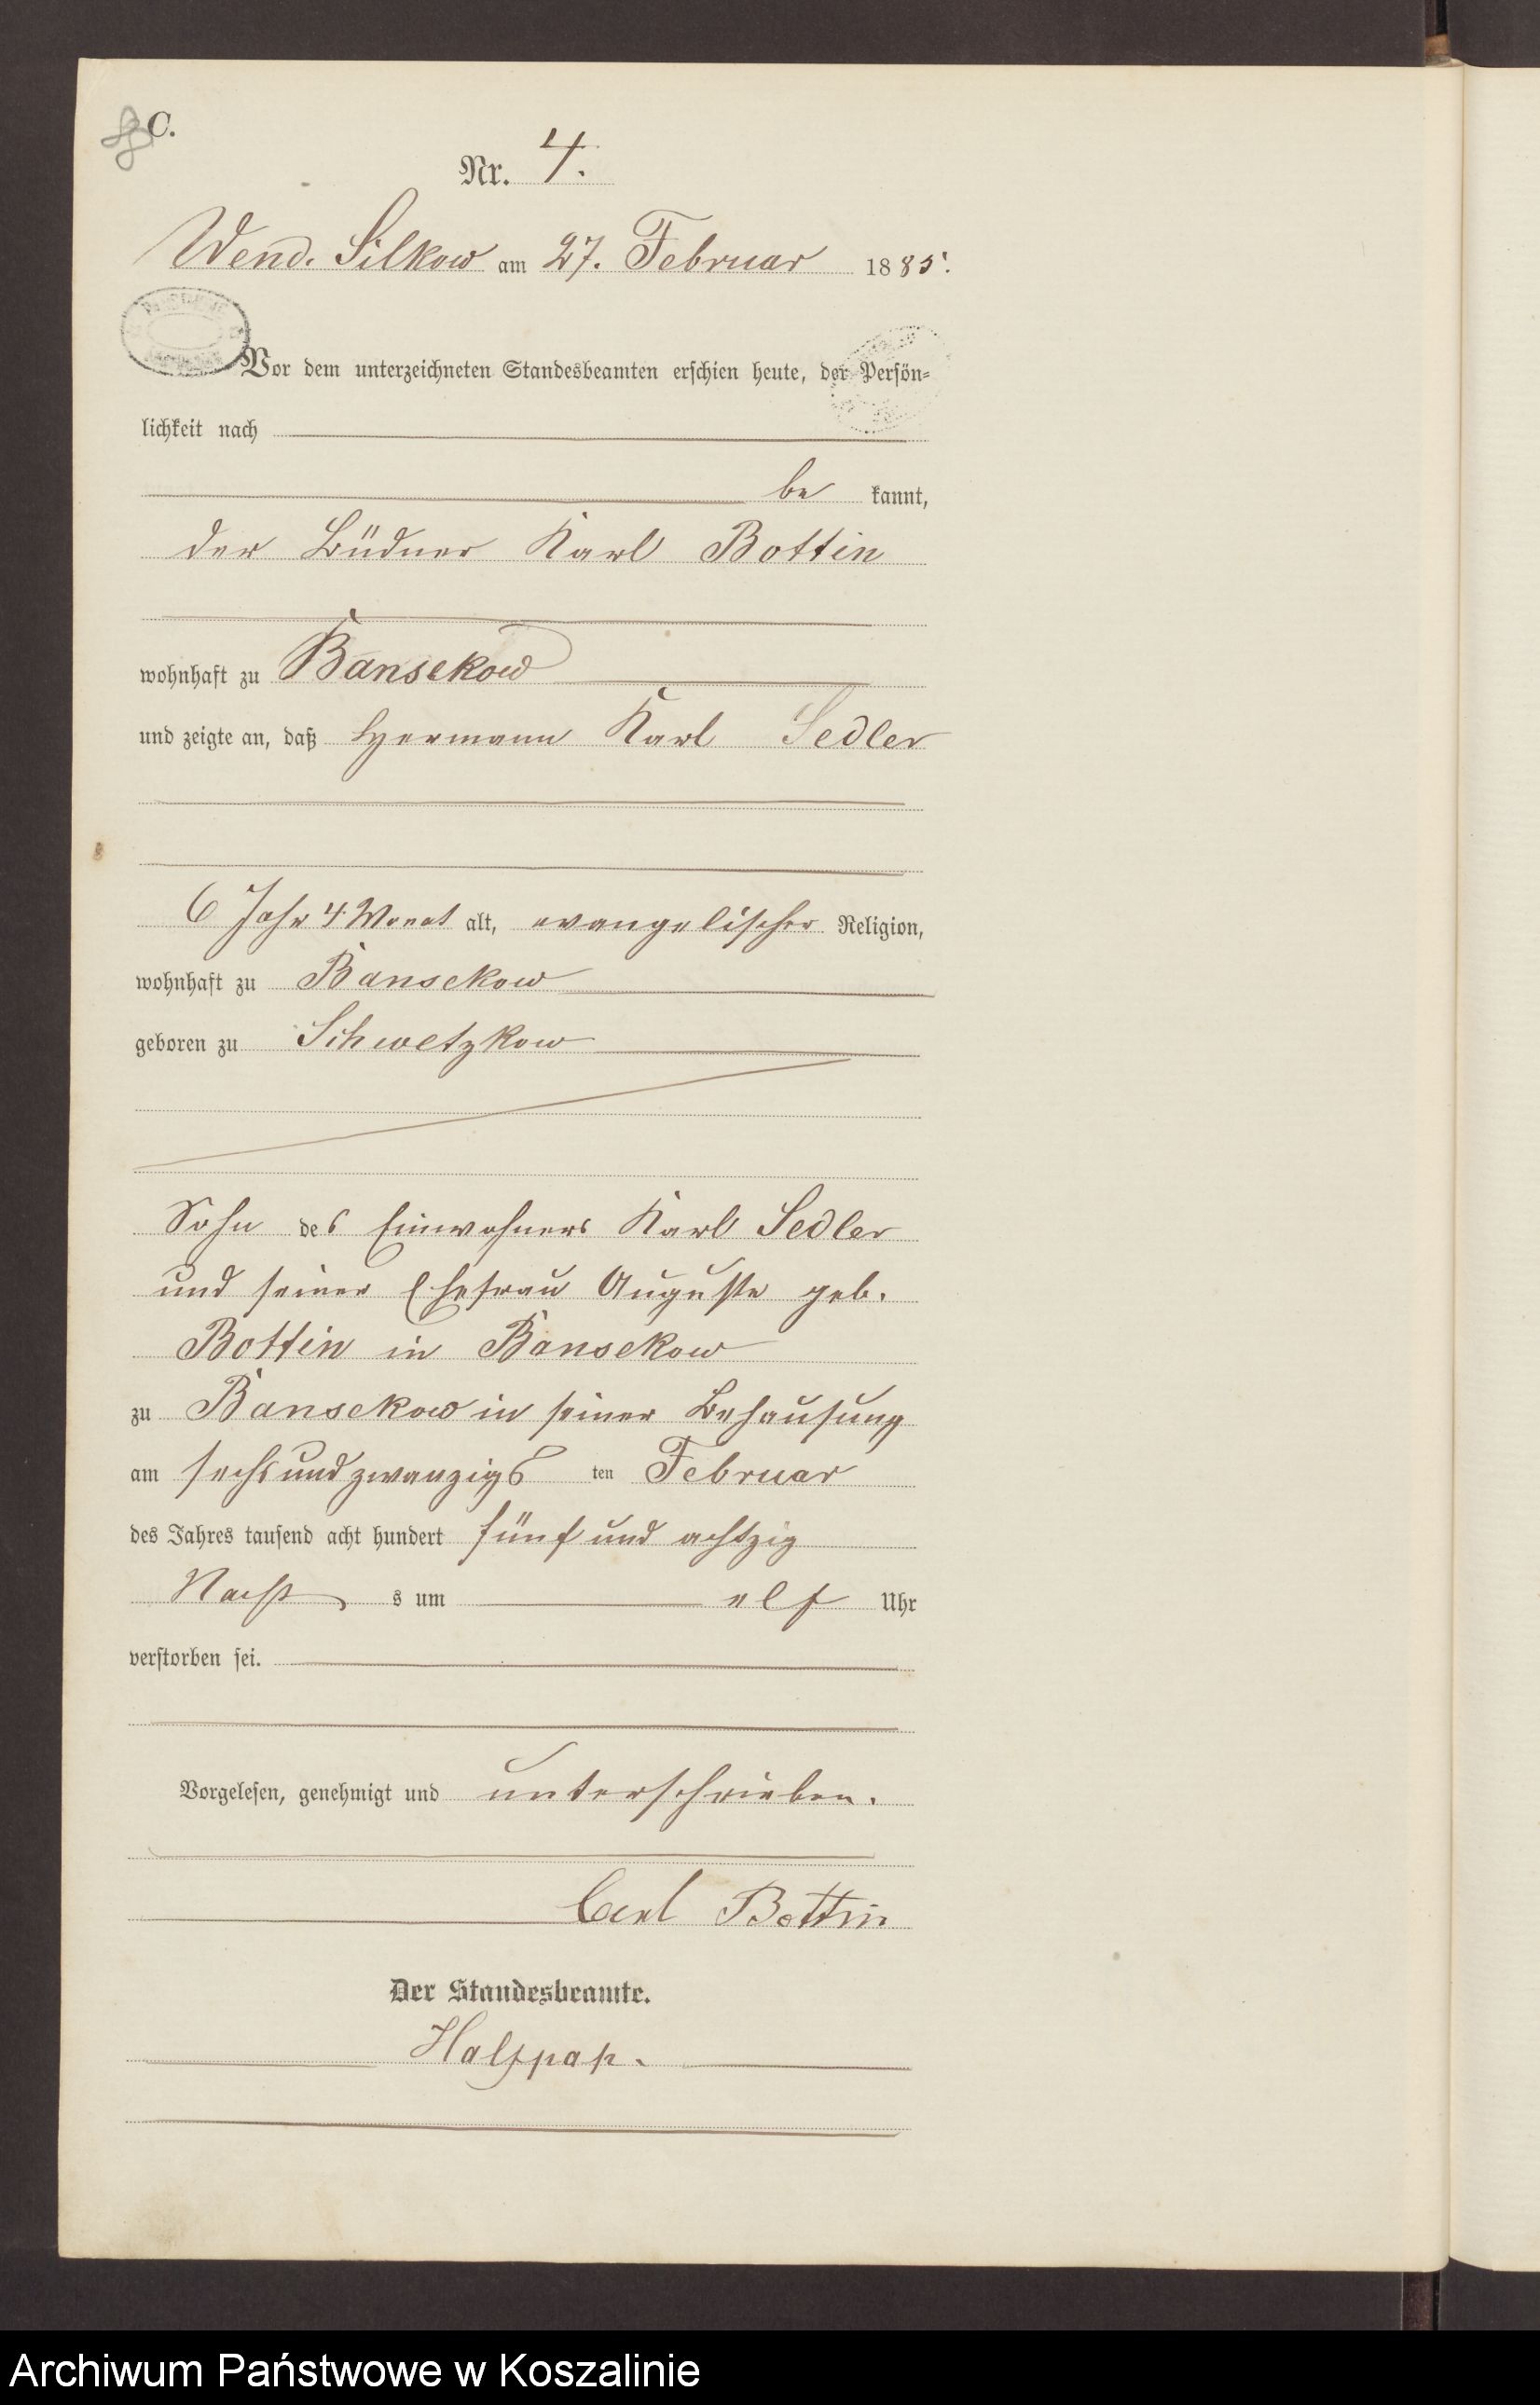 C.
Nr. 4.
Wend. Silkow am 27. Februar 1885.
Vor dem unterzeichneten Standesbeamten erschien heute, der Persön-
lichkeit nach
be kannt,
der Büdner Karl Bottin
wohnhaft zu Bansekow
und zeigte an, daß Hermann Karl Sedler
6 Jahr 4 Monat alt, evangelischer Religion,
wohnhaft zu Bansekow
geboren zu Schwetzkow
Sohn des Einwohners Karl Sedler
und seiner Ehefrau Auguste geb.
Bottin in Bansekow
zu Bansekow in seiner Behausung
am sechsundzwanzigsten Februar
des Jahres tausend acht hundert fünf und achtzig
Nachts um elf Uhr
verstorben sei.
Vorgelesen, genehmigt und unterschrieben.
Carl Bottin
Der Standesbeamte.
Halfpap.
Archiwum Państwowe w Koszalinie